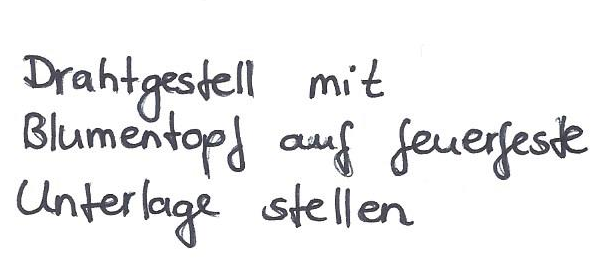 Drahtgestell mit
Blumentopf auf feuerfeste
Unterlage stellen